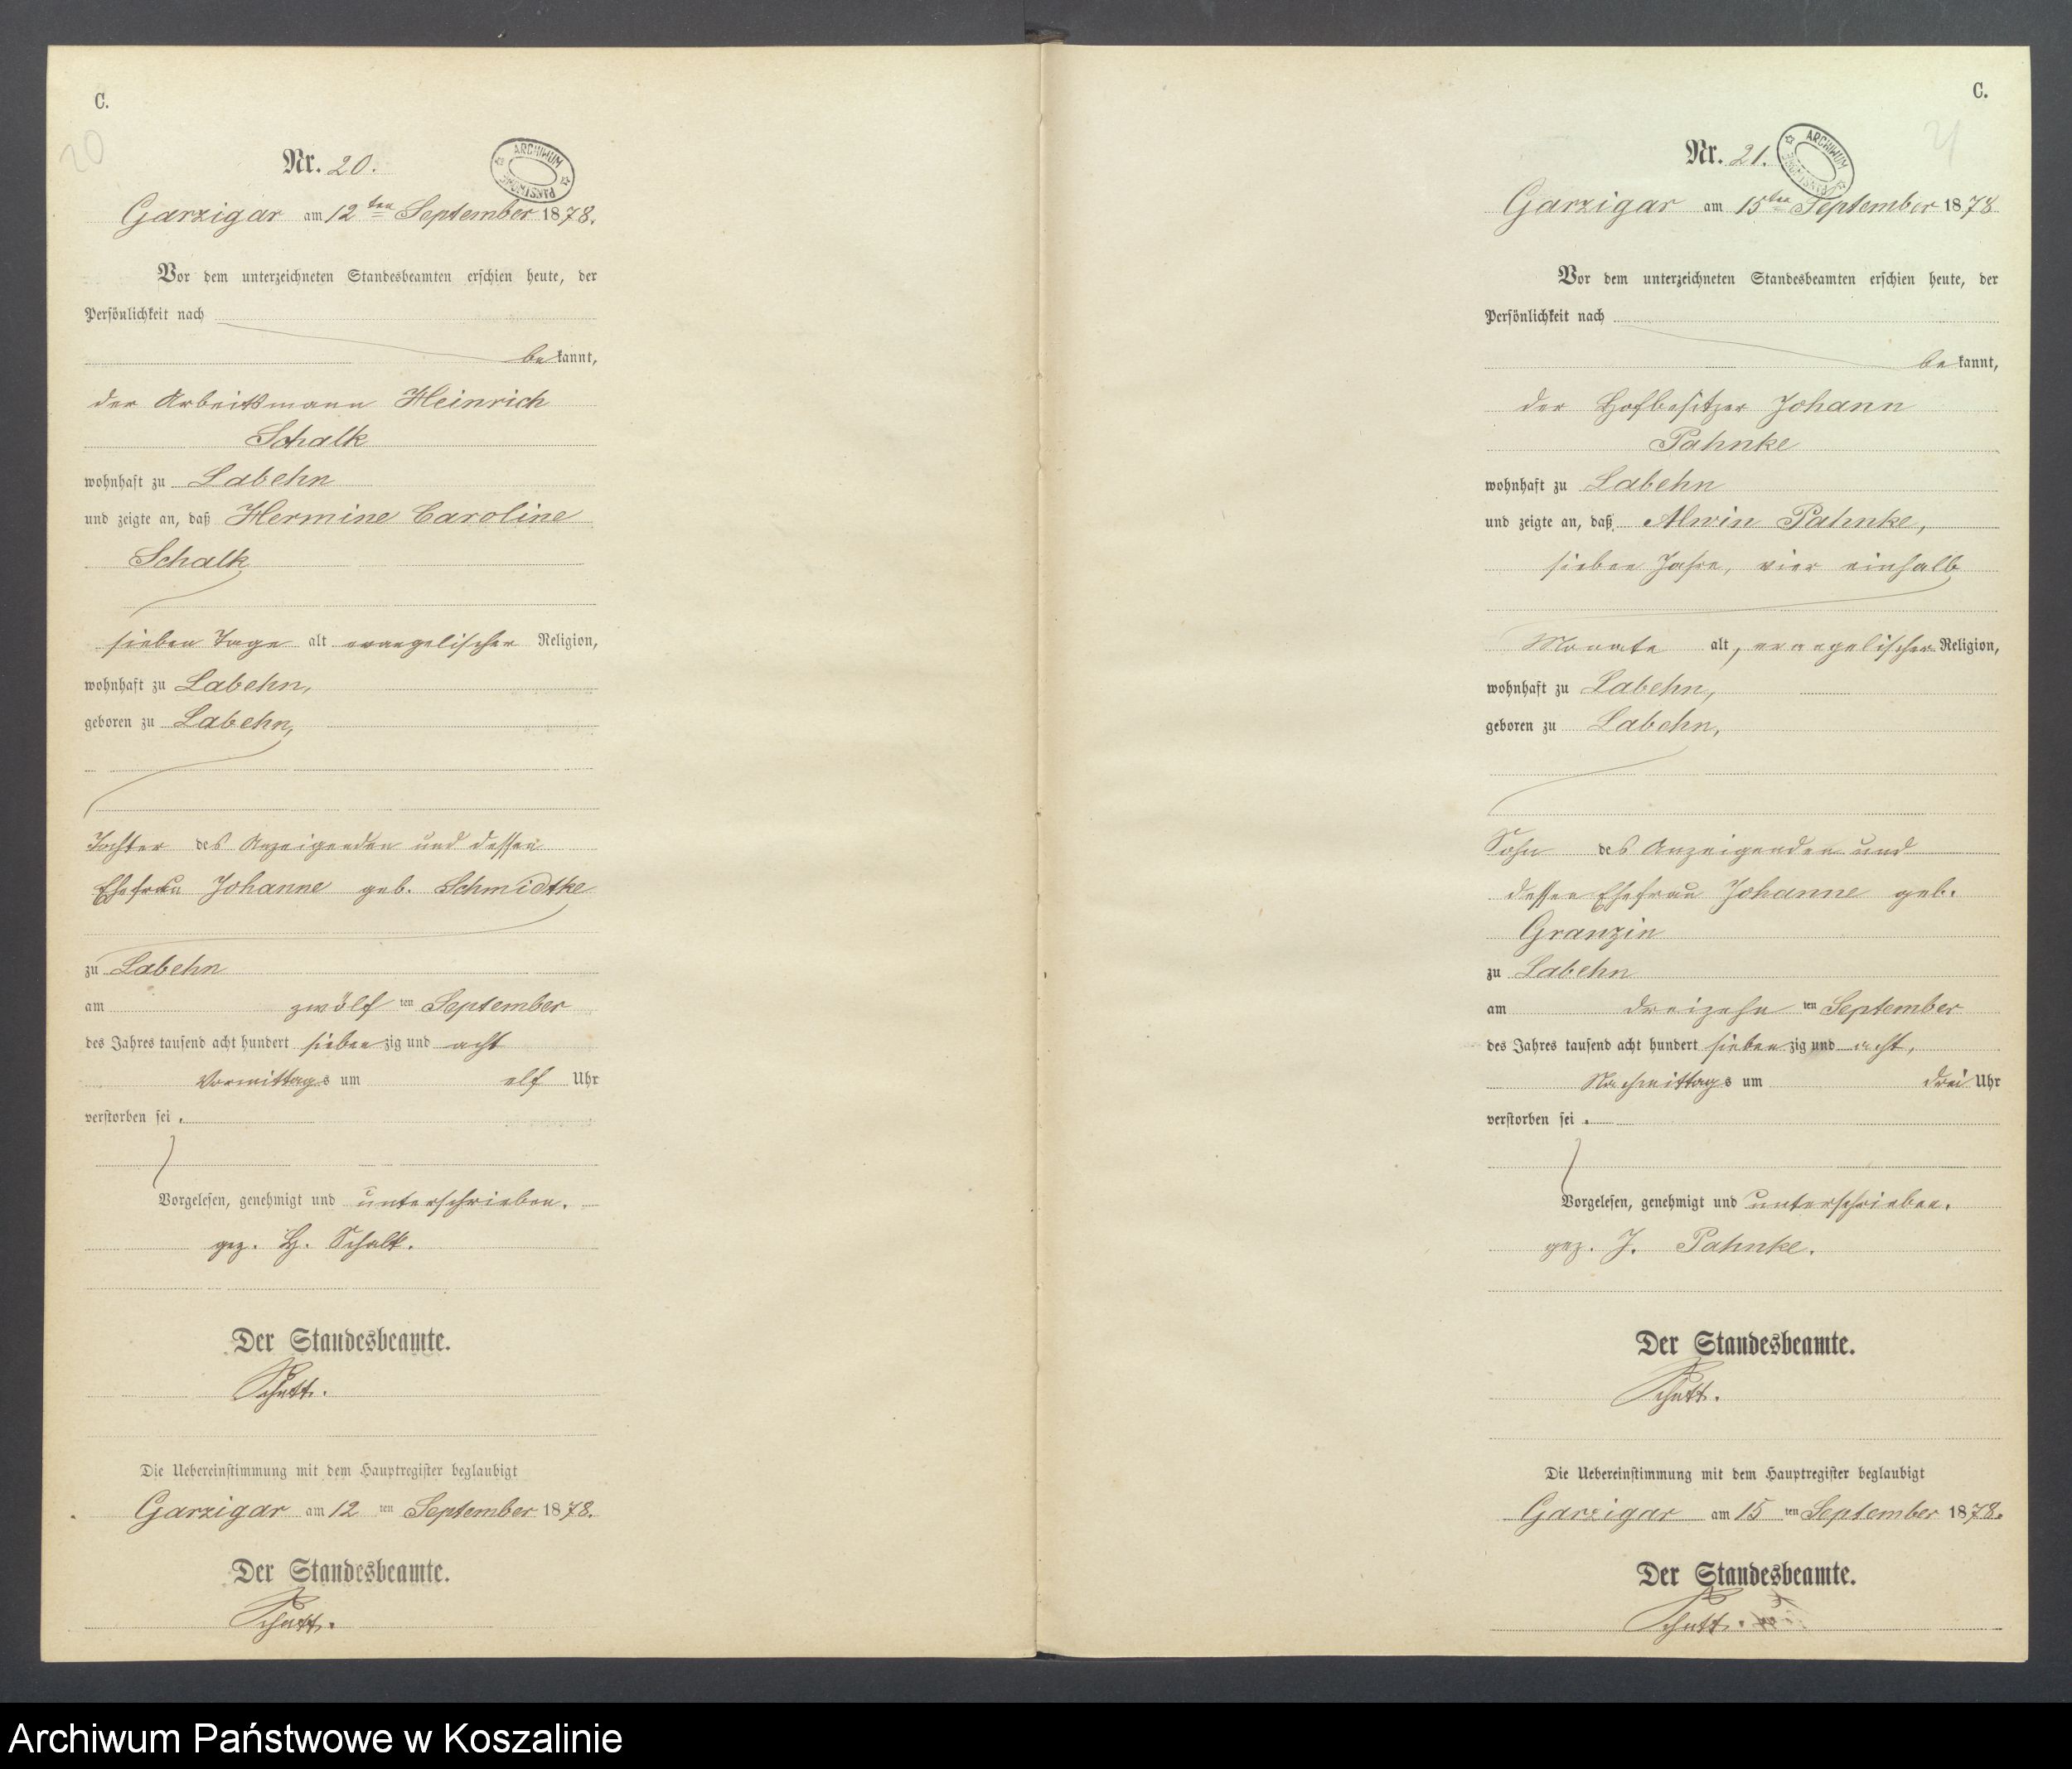 C.
20
Nr. 20.
ARCHIWUM PAŃSTWOWE
Garzigar am 12ten September 1878.
Vor dem unterzeichneten Standesbeamten erschien heute, der
Persönlichkeit nach
bekannt,
der Arbeitsmann Heinrich
Schalk
wohnhaft zu Labehn
und zeigte an, daß Hermine Caroline
Schalk
sieben Tage alt evangelischer Religion,
wohnhaft zu Labehn,
geboren zu Labehn,
Tochter des Anzeigenden und dessen
Ehefrau Johanne geb. Schmidtke
zu Labehn
am zwölften September
des Jahres tausend acht hundert siebenzig und acht
Vormittags um elf Uhr
verstorben sei.
Vorgelesen, genehmigt und unterschrieben.
gez. H. Schalk.
Der Standesbeamte.
Die Uebereinstimmung mit dem Hauptregister beglaubigt
Garzigar am 12ten September 1878.
Der Standesbeamte.
C.
21
Nr. 21.
ARCHIWUM PAŃSTWOWE
Garzigar am 15ten September 1878
Vor dem unterzeichneten Standesbeamten erschien heute, der
Persönlichkeit nach
bekannt,
der Hofbesitzer Johann
Pahnke
wohnhaft zu Labehn
und zeigte an, daß Alwin Pahnke,
sieben Jahre, vier einhalb
Monate alt, evangelischer Religion,
wohnhaft zu Labehn,
geboren zu Labehn,
Sohn des Anzeigenden und
dessen Ehefrau Johanne geb.
Granzin
zu Labehn
am dreizehnten September
des Jahres tausend acht hundert siebenzig und acht,
Nachmittags um drei Uhr
verstorben sei.
Vorgelesen, genehmigt und unterschrieben.
gez. J. Pahnke.
Der Standesbeamte.
Die Uebereinstimmung mit dem Hauptregister beglaubigt
Garzigar am 15ten September 1878.
Der Standesbeamte.
Archiwum Państwowe w Koszalinie